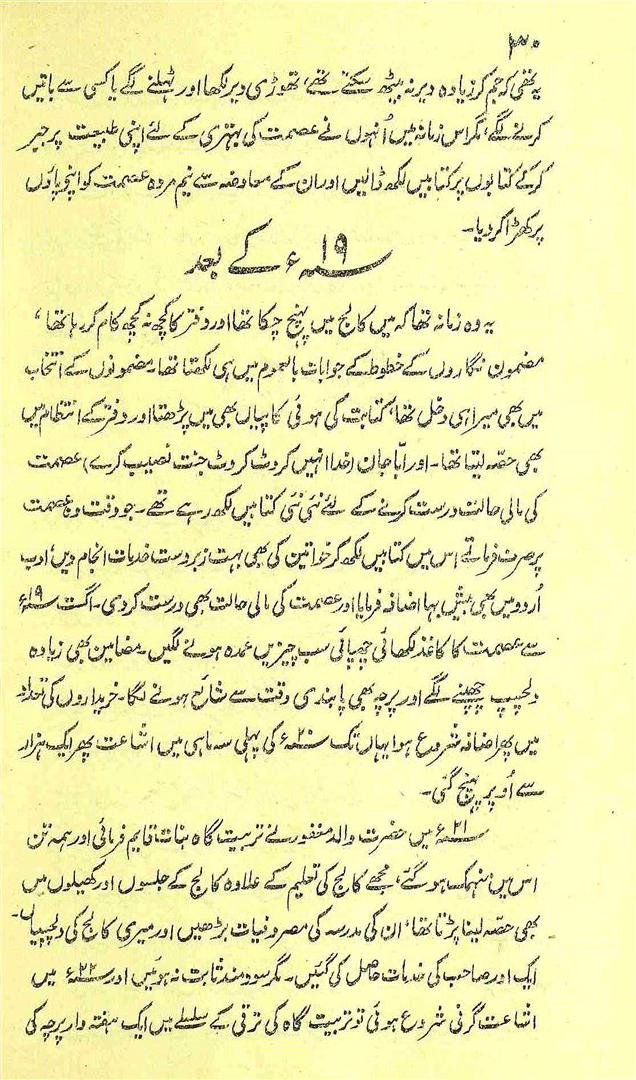 ۳۰
یہ تھی کہ جم کر زیادہ دیر نہ بیٹھ سکتے تھے، تھوڑی دیر لکھا اور ٹہلنے لگے یا کسی سے باتیں
کرنے لگے، مگر اس زمانہ میں اُنہوں نے عصمت کی بہتری کے لئے اپنی طبیعت پر جبر
کرکے کتابوں پر کتابیں لکھ ڈالیں اور ان کے معاوضہ سے نیم مردہ عصمت کو اپنے پاؤں
پر کھڑا کر دیا۔
۱۹ء کے بعد
یہ وہ زمانہ تھا کہ میں کالج میں پہنچ چکا تھا اور دفتر کا کچھ نہ کچھ کام کر رہا تھا،
مضمون نگاروں کے خطوط کے جوابات بالعموم میں ہی لکھتا تھا۔ مضمونوں کے انتخاب
میں بھی میرا ہی دخل تھا، کتابت کی ہوئی کاپیاں بھی میں پڑھتا اور دفتر کے انتظام میں
بھی حصہ لیتا تھا۔ اور ابّا جان (خدا انہیں کروٹ کروٹ جنت نصیب کرے) عصمت
کی مالی حالت درست کرنے کے لئے نئی نئی کتابیں لکھ رہے تھے۔ جو وقت وہ عصمت
پر صرف فرماتے اس میں کتابیں لکھ کر خواتین کی بھی بہت زبردست خدمات انجام دیں، ادب
اُردو میں بھی بیش بہا اضافہ فرمایا اور عصمت کی مالی حالت بھی درست کر دی۔ اگست ۱۹ء
سے عصمت کا کاغذ لکھائی چھپائی سب چیزیں عمدہ ہونے لگیں۔ مضامین بھی زیادہ
دلچسپ چھپنے لگے اور پرچہ بھی پابندی وقت سے شائع ہونے لگا۔ خریداروں کی تعداد
میں پھر اضافہ شروع ہوا یہاں تک ۲۰ء کی پہلی سہ ماہی میں اشاعت پھر ایک ہزار
سے اُوپر پہنچ گئی۔
۲۱ء میں حضرت والد مغفور نے تربیت گاہ بنات قایم فرمائی اور ہمہ تن
اس میں منہمک ہو گئے، مجھے کالج کی تعلیم کے علاوہ کالج کے جلسوں اور کھیلوں میں
بھی حصہ لینا پڑتا تھا، ان کی مدرسہ کی مصروفیات بڑھیں اور میری کالج کی دلچسپیاں۔
ایک اور صاحب کی خدمات حاصل کی گئیں۔ مگر سود مند ثابت نہ ہوئیں اور ۲۲ء میں
اشاعت گرنی شروع ہوئی تو تربیت گاہ کی ترقی کے سلسلے میں ایک ہفتہ وار پرچہ کی